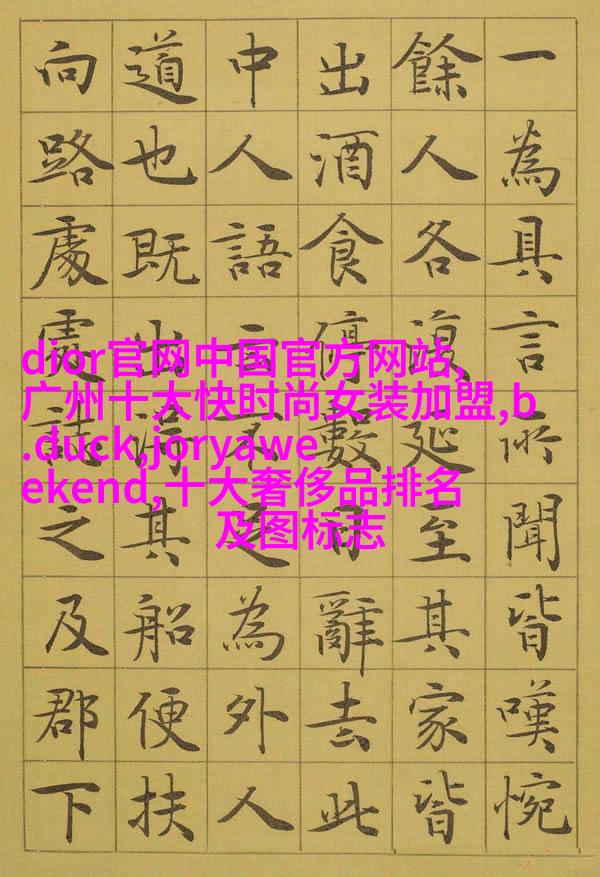 一為具言所聞皆嘆惋
餘人各復延至其家皆
出酒食停數日辭去此
中人語云不足為外人
道也既出得其船便扶
向路處處誌之及郡下
dior官网中国官方网站,
广州十大快时尚女装加盟,b
.duck,joryawe
ekend,十大奢侈品排名
及图标志